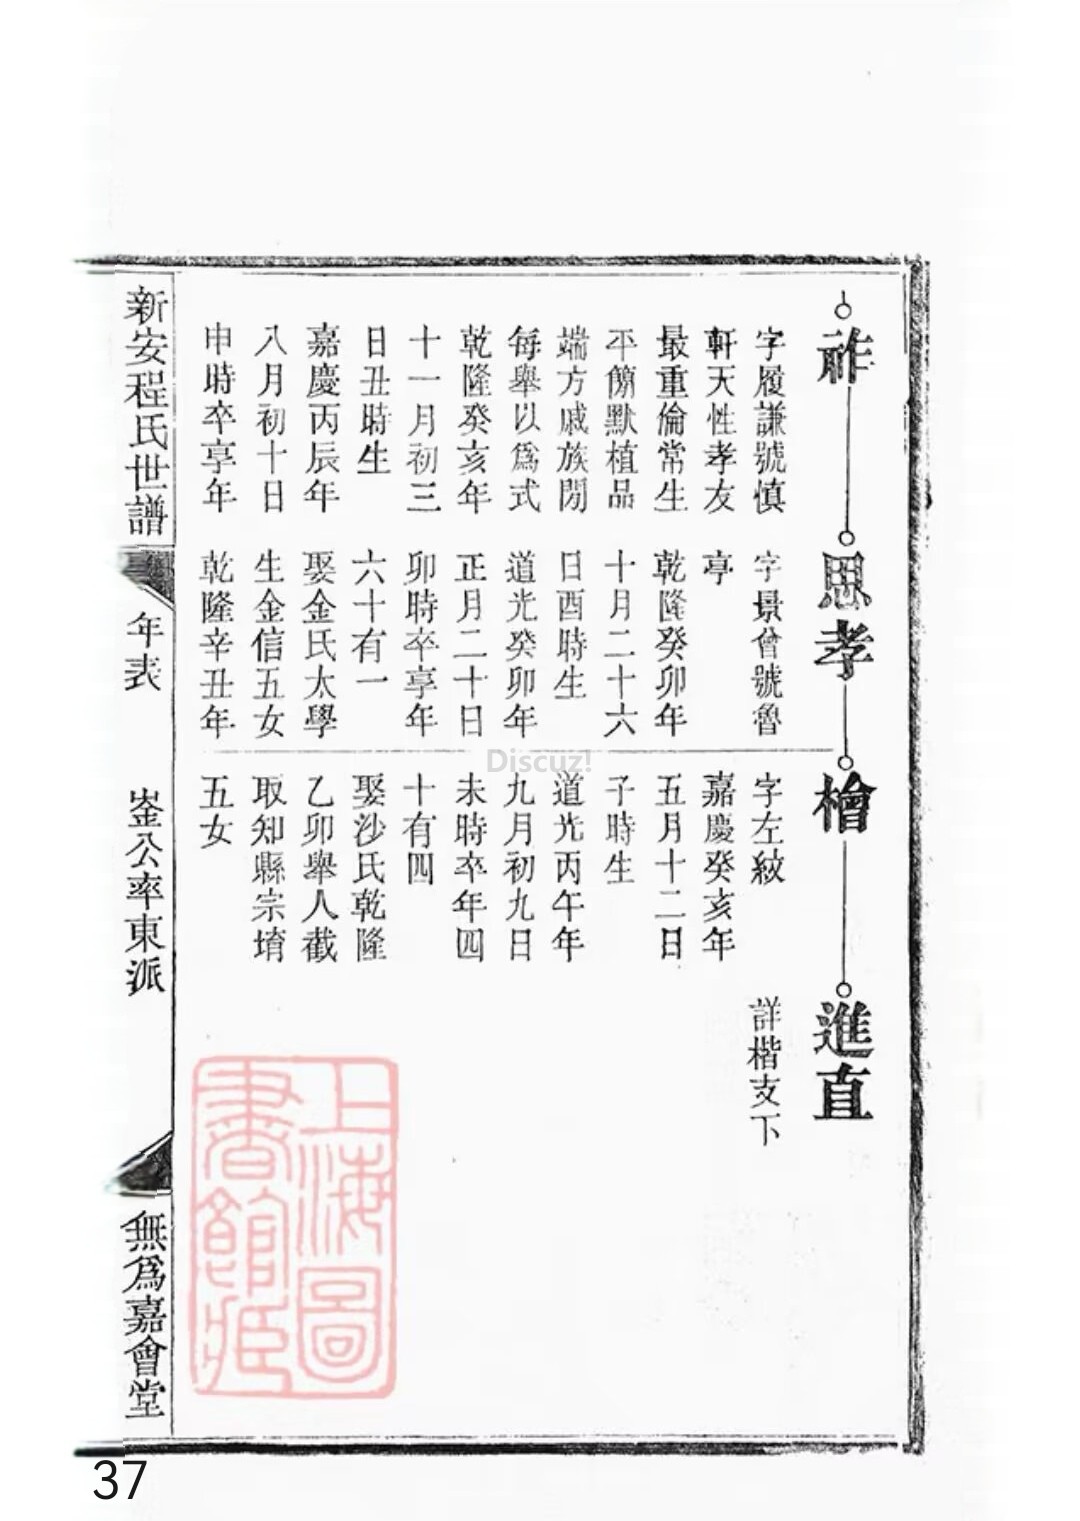 祚
字履謙號慎
軒天性孝友
最重倫常生
平簡默植品
端方戚族閒
每舉以爲式
乾隆癸亥年
十一月初三
日丑時生
嘉慶丙辰年
八月初十日
申時卒享年
思孝
字景曾號魯
亭
乾隆癸卯年
十月二十六
日酉時生
道光癸卯年
正月二十日
卯時卒享年
六十有一
娶金氏太學
生金信五女
乾隆辛丑年
檜
字左紋
嘉慶癸亥年
五月十二日
子時生
道光丙午年
九月初九日
未時卒年四
十有四
娶沙氏乾隆
乙卯舉人截
取知縣宗堉
五女
進直
詳楷支下
新安程氏世譜
年表
崟公率東派
無爲嘉會堂
上海圖
書館藏
Discuz!
37